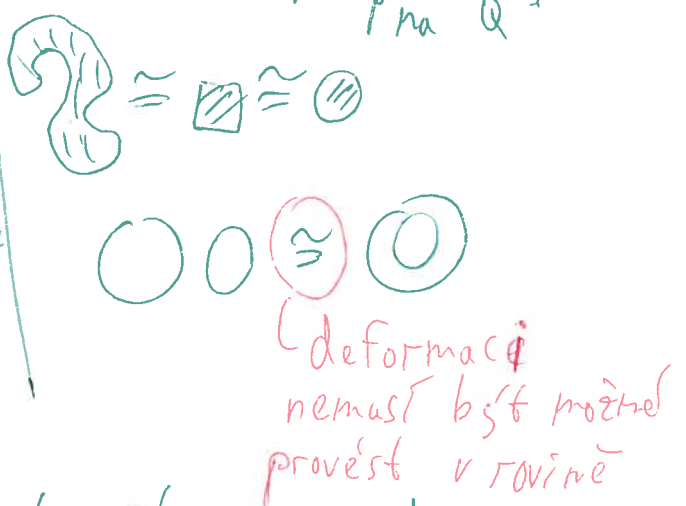 na Q
≅ ≅
≅
deformaci
nemusí být možné
provést v rovině